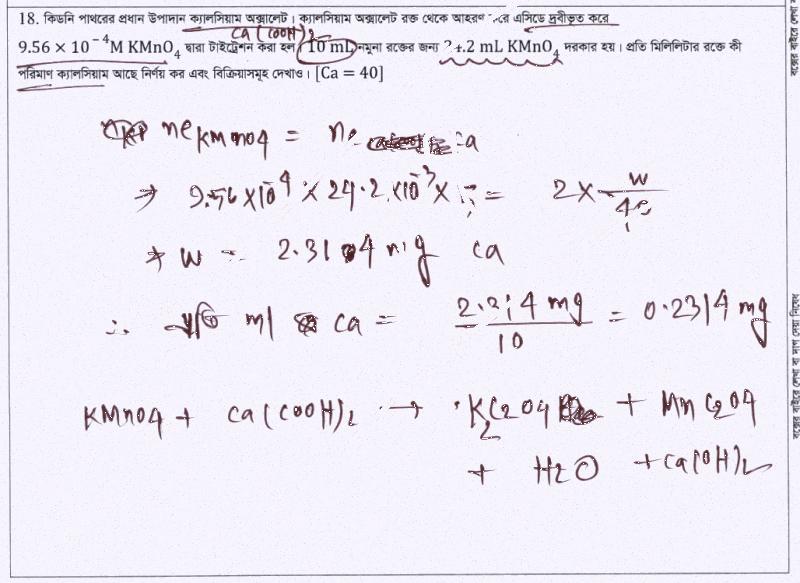 18. কিডনি পাথরের প্রধান উপাদান ক্যালসিয়াম অক্সালেট। ক্যালসিয়াম অক্সালেট রক্ত থেকে আহরণ এসিডে দ্রবীভূত করে
Ca(COOH)2
9.56 × 10⁻⁴M KMnO₄ দ্বারা টাইট্রেশন করা হল 10 mL নমুনা রক্তের জন্য 24.2 mL KMnO₄ দরকার হয়। প্রতি মিলিলিটার রক্তে কী
পরিমাণ ক্যালসিয়াম আছে নির্ণয় কর এবং বিক্রিয়াসমূহ দেখাও। [Ca = 40]
ne KMnO4 = ne Ca
⇒ 9.56 × 10⁻⁴ × 24.2 × 10⁻³ × 5 = 2 × w/40
⇒ w = 2.314 mg Ca
∴ প্রতি ml Ca = 2.314 mg/10 = 0.2314 mg
KMnO4 + Ca(COOH)2 → K2C2O4 + MnC2O4
+ H2O + Ca(OH)2
বক্সের বাইরে লেখা বা দাগ দেয়া নিষেধ